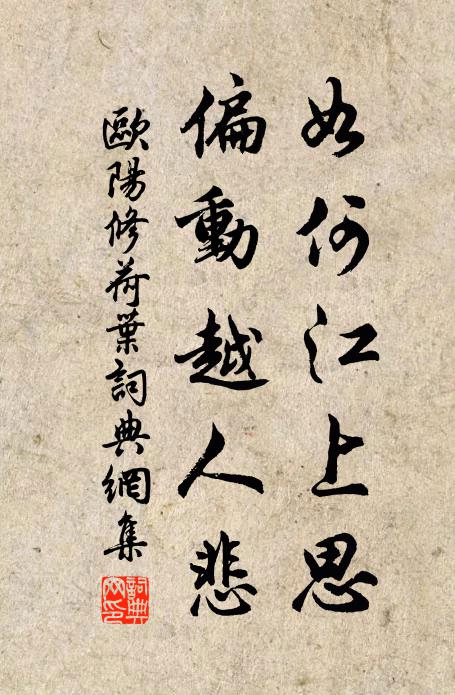 如何江上思
偏動越人悲
歐陽修荷葉詞典網集
詞典